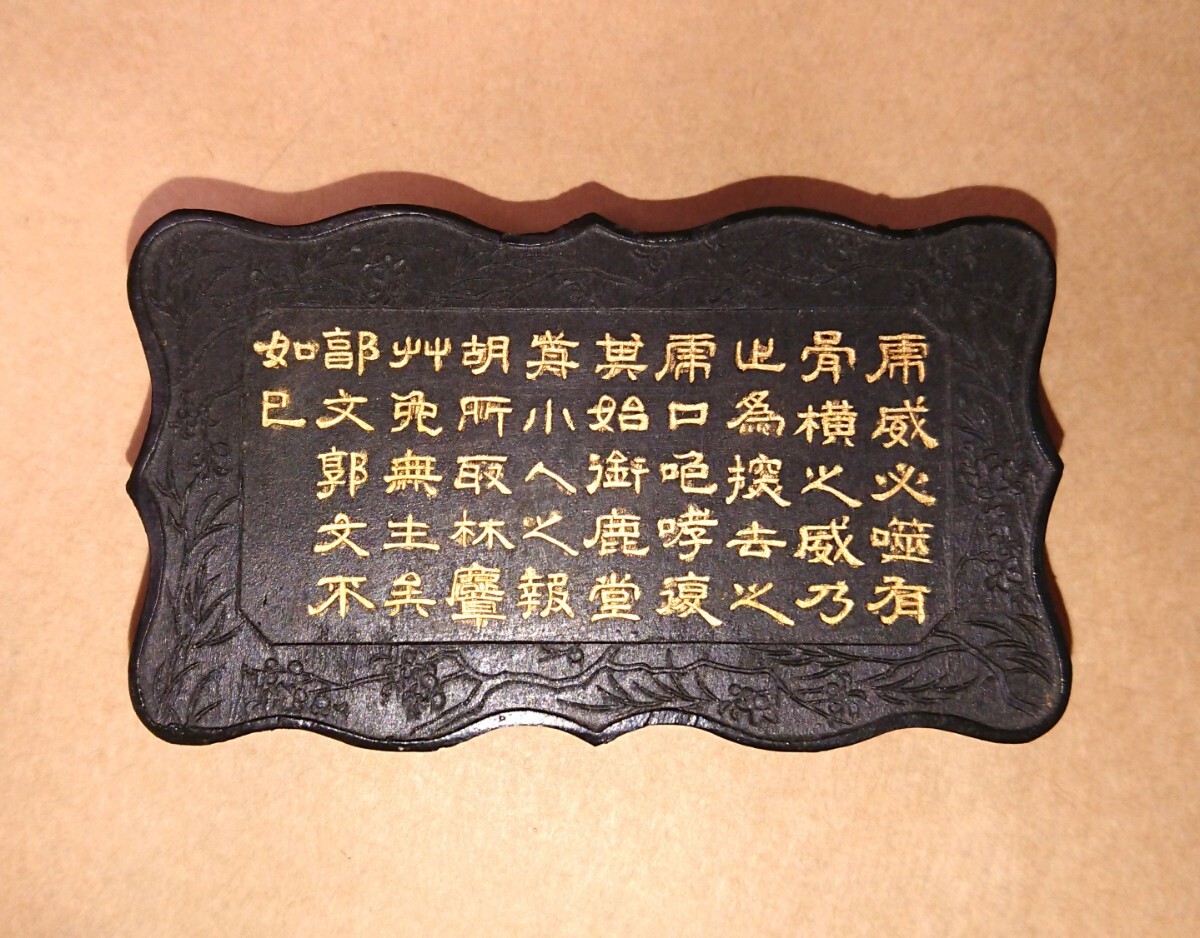 虎威必噬有
骨橫之威乃
止為探去之
虎口咆哮復
其始銜鹿堂
前小人之報
胡所取林麞
艸兔無主矣
郭文郭文不
如已